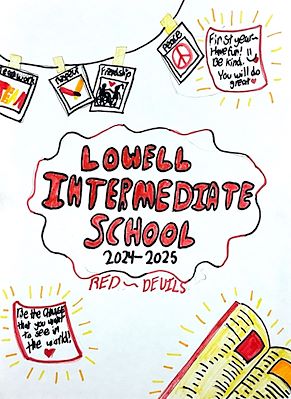 Teamwork
Respect
Friendship
Peace
First year-
Have fun!
Be kind.
You will do
great
LOWELL
INTERMEDIATE
SCHOOL
2024-2025
RED DEVILS
Be the CHANGE
that you want
to see in
the world!